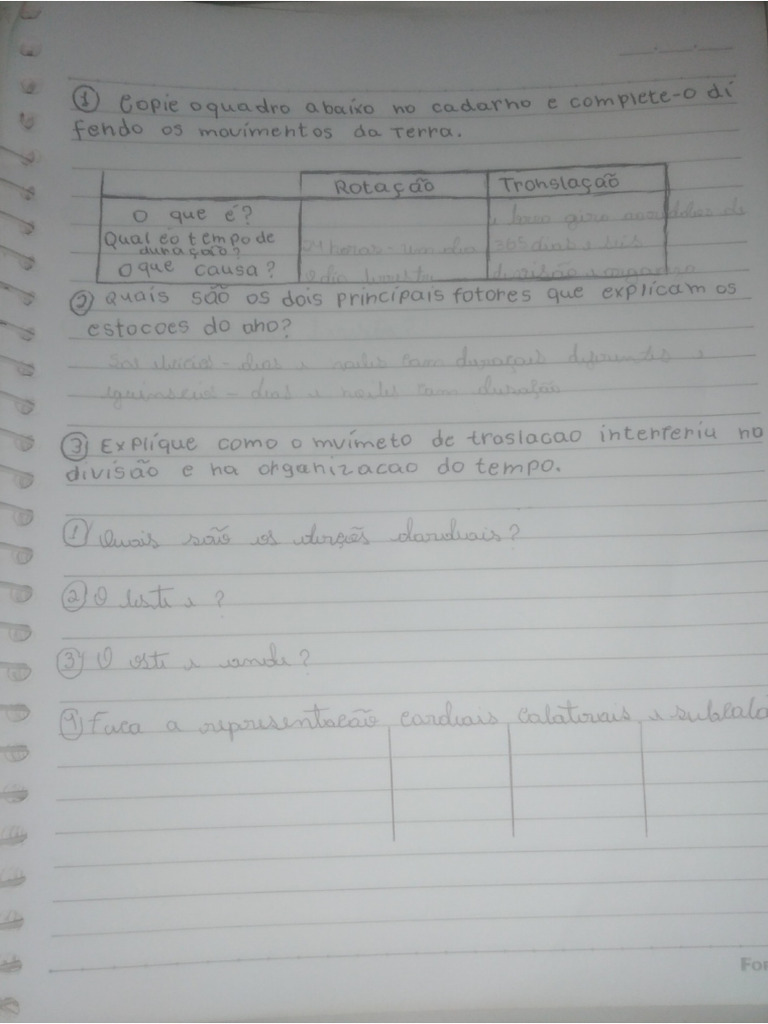 ① Copie o quadro abaixo no cadarno e complete-o di
fendo os movimentos da Terra.
Rotação Translação
O que é?
Qual é o tempo de
duração? 24 horas - um dia 365 dias e seis
O que causa? divisão
② Quais são os dois principais fotores que explicam os
estocoes do ano?
dias e noites com duraçais diferentes e
dias e noites com duração
③ Explique como o mvimeto de troslacao interferiu no
divisão e na organizacao do tempo.
① Quais são os
② O leste e ?
③ O oste e
Faca a representacão cardiais colaterais e
For